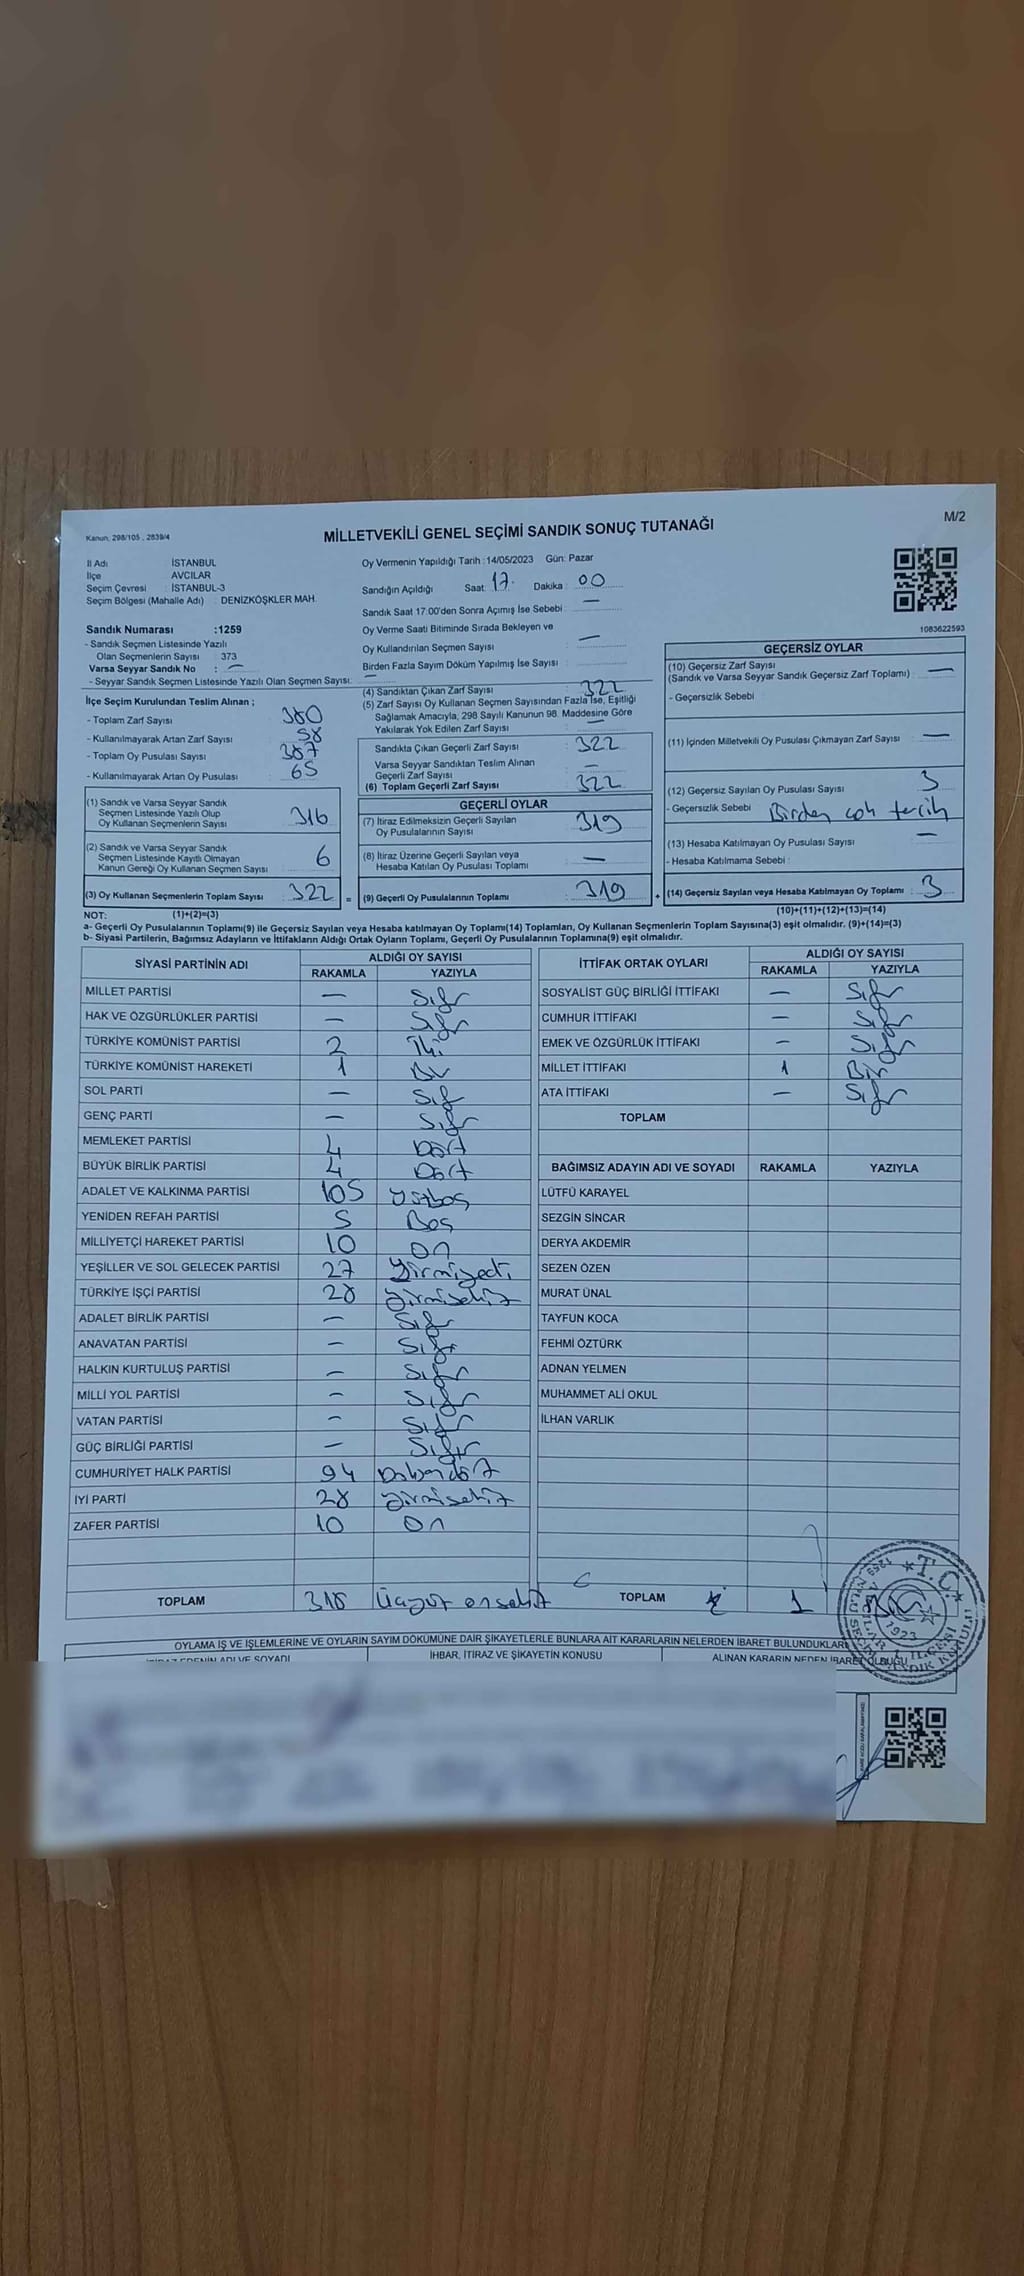 Kanun, 298/105 , 2839/4
MİLLETVEKİLİ GENEL SEÇİMİ SANDIK SONUÇ TUTANAĞI
M/2
İl Adı İSTANBUL
İlçe AVCILAR
Seçim Çevresi : İSTANBUL-3
Seçim Bölgesi (Mahalle Adı) : DENİZKÖŞKLER MAH.
Sandık Numarası :1259
- Sandık Seçmen Listesinde Yazılı
Olan Seçmenlerin Sayısı : 373
Varsa Seyyar Sandık No : —
- Seyyar Sandık Seçmen Listesinde Yazılı Olan Seçmen Sayısı: —
Oy Vermenin Yapıldığı Tarih :14/05/2023 Gün: Pazar
Sandığın Açıldığı Saat: 17. Dakika : 00
Sandık Saat 17:00'den Sonra Açımış İse Sebebi : —
Oy Verme Saati Bitiminde Sırada Bekleyen ve
Oy Kullandırılan Seçmen Sayısı : —
Birden Fazla Sayım Döküm Yapılmış İse Sayısı :
1083622593
İlçe Seçim Kurulundan Teslim Alınan ;
- Toplam Zarf Sayısı : 380
- Kullanılmayarak Artan Zarf Sayısı : 58
- Toplam Oy Pusulası Sayısı : 387
- Kullanılmayarak Artan Oy Pusulası : 65
(1) Sandık ve Varsa Seyyar Sandık
Seçmen Listesinde Yazılı Olup
Oy Kullanan Seçmenlerin Sayısı : 316
(2) Sandık ve Varsa Seyyar Sandık
Seçmen Listesinde Kayıtlı Olmayan
Kanun Gereği Oy Kullanan Seçmen Sayısı : 6
(3) Oy Kullanan Seçmenlerin Toplam Sayısı : 322 =
(4) Sandıktan Çıkan Zarf Sayısı : 322
(5) Zarf Sayısı Oy Kullanan Seçmen Sayısından Fazla İse, Eşitliği
Sağlamak Amacıyla, 298 Sayılı Kanunun 98. Maddesine Göre
Yakılarak Yok Edilen Zarf Sayısı : —
Sandıkta Çıkan Geçerli Zarf Sayısı : 322
Varsa Seyyar Sandıktan Teslim Alınan
Geçerli Zarf Sayısı : —
(6) Toplam Geçerli Zarf Sayısı : 322
GEÇERLİ OYLAR
(7) İtiraz Edilmeksizin Geçerli Sayılan
Oy Pusulalarının Sayısı : 319
(8) İtiraz Üzerine Geçerli Sayılan veya
Hesaba Katılan Oy Pusulası Toplamı : —
(9) Geçerli Oy Pusulalarının Toplamı : 319 +
GEÇERSİZ OYLAR
(10) Geçersiz Zarf Sayısı
(Sandık ve Varsa Seyyar Sandık Geçersiz Zarf Toplamı) : —
- Geçersizlik Sebebi :
(11) İçinden Milletvekili Oy Pusulası Çıkmayan Zarf Sayısı : —
(12) Geçersiz Sayılan Oy Pusulası Sayısı : 3
- Geçersizlik Sebebi : Birden çok tercih
(13) Hesaba Katılmayan Oy Pusulası Sayısı : —
- Hesaba Katılmama Sebebi :
(14) Geçersiz Sayılan veya Hesaba Katılmayan Oy Toplamı : 3
NOT: (1)+(2)=(3) (10)+(11)+(12)+(13)=(14)
a- Geçerli Oy Pusulalarının Toplamı(9) ile Geçersiz Sayılan veya Hesaba Katılmayan Oy Toplamı(14) Toplamları, Oy Kullanan Seçmenlerin Toplam Sayısına(3) eşit olmalıdır. (9)+(14)=(3)
b- Siyasi Partilerin, Bağımsız Adayların ve İttifakların Aldığı Ortak Oyların Toplamı, Geçerli Oy Pusulalarının Toplamına(9) eşit olmalıdır.
SİYASİ PARTİNİN ADI ALDIĞI OY SAYISI
RAKAMLA YAZIYLA
MİLLET PARTİSİ — Sıfır
HAK VE ÖZGÜRLÜKLER PARTİSİ — Sıfır
TÜRKİYE KOMÜNİST PARTİSİ 2 İki
TÜRKİYE KOMÜNİST HAREKETİ 1 Bir
SOL PARTİ — Sıfır
GENÇ PARTİ — Sıfır
MEMLEKET PARTİSİ 4 Dört
BÜYÜK BİRLİK PARTİSİ 4 Dört
ADALET VE KALKINMA PARTİSİ 105 Yüzbeş
YENİDEN REFAH PARTİSİ 5 Beş
MİLLİYETÇİ HAREKET PARTİSİ 10 On
YEŞİLLER VE SOL GELECEK PARTİSİ 27 Yirmiyedi
TÜRKİYE İŞÇİ PARTİSİ 28 Yirmisekiz
ADALET BİRLİK PARTİSİ — Sıfır
ANAVATAN PARTİSİ — Sıfır
HALKIN KURTULUŞ PARTİSİ — Sıfır
MİLLİ YOL PARTİSİ — Sıfır
VATAN PARTİSİ — Sıfır
GÜÇ BİRLİĞİ PARTİSİ — Sıfır
CUMHURİYET HALK PARTİSİ 94 Doksandört
İYİ PARTİ 28 Yirmisekiz
ZAFER PARTİSİ 10 On
TOPLAM 318 Üçyüz onsekiz
İTTİFAK ORTAK OYLARI ALDIĞI OY SAYISI
RAKAMLA YAZIYLA
SOSYALİST GÜÇ BİRLİĞİ İTTİFAKI — Sıfır
CUMHUR İTTİFAKI — Sıfır
EMEK VE ÖZGÜRLÜK İTTİFAKI — Sıfır
MİLLET İTTİFAKI 1 Bir
ATA İTTİFAKI — Sıfır
TOPLAM
BAĞIMSIZ ADAYIN ADI VE SOYADI RAKAMLA YAZIYLA
LÜTFÜ KARAYEL
SEZGİN SİNCAR
DERYA AKDEMİR
SEZEN ÖZEN
MURAT ÜNAL
TAYFUN KOCA
FEHMİ ÖZTÜRK
ADNAN YELMEN
MUHAMMET ALİ OKUL
İLHAN VARLIK
TOPLAM 1
T.C.
1923
OYLAMA İŞ VE İŞLEMLERİNE VE OYLARIN SAYIM DÖKÜMÜNE DAİR ŞİKAYETLERLE BUNLARA AİT KARARLARIN NELERDEN İBARET BULUNDUKLARI
İTİRAZ EDENİN ADI VE SOYADI İHBAR, İTİRAZ VE ŞİKAYETİN KONUSU ALINAN KARARIN NEDEN İBARET OLDUĞU